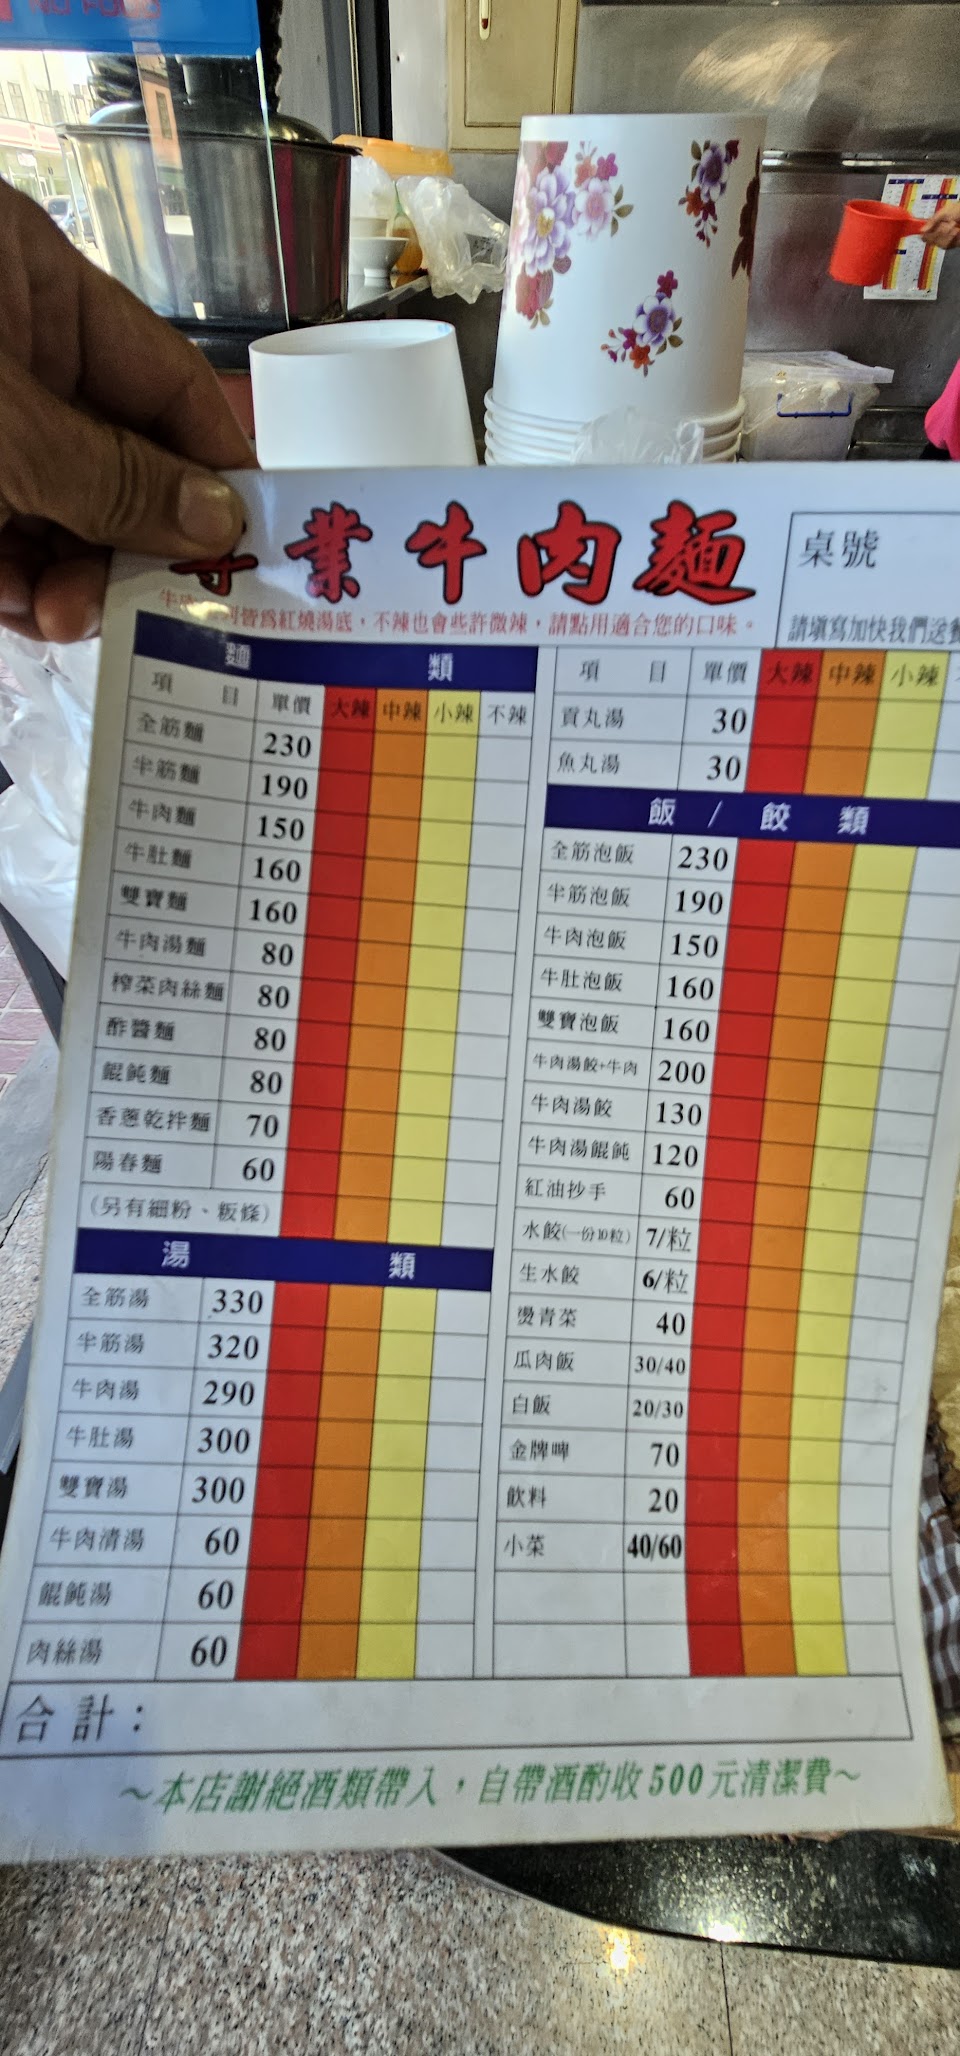 NO FOOD
專業牛肉麵
桌號
皆為紅燒湯底，不辣也會些許微辣，請點用適合您的口味。
請填寫加快我們送餐
麵 類
項 目 單價 大辣 中辣 小辣 不辣
全筋麵 230
半筋麵 190
牛肉麵 150
牛肚麵 160
雙寶麵 160
牛肉湯麵 80
榨菜肉絲麵 80
酢醬麵 80
餛飩麵 80
香蔥乾拌麵 70
陽春麵 60
(另有細粉、粄條)
湯 類
全筋湯 330
半筋湯 320
牛肉湯 290
牛肚湯 300
雙寶湯 300
牛肉清湯 60
餛飩湯 60
肉絲湯 60
項 目 單價 大辣 中辣 小辣
貢丸湯 30
魚丸湯 30
飯 / 餃 類
全筋泡飯 230
半筋泡飯 190
牛肉泡飯 150
牛肚泡飯 160
雙寶泡飯 160
牛肉湯餃+牛肉 200
牛肉湯餃 130
牛肉湯餛飩 120
紅油抄手 60
水餃(一份10粒) 7/粒
生水餃 6/粒
燙青菜 40
瓜肉飯 30/40
白飯 20/30
金牌啤 70
飲料 20
小菜 40/60
合計：
～本店謝絕酒類帶入，自帶酒酌收500元清潔費～